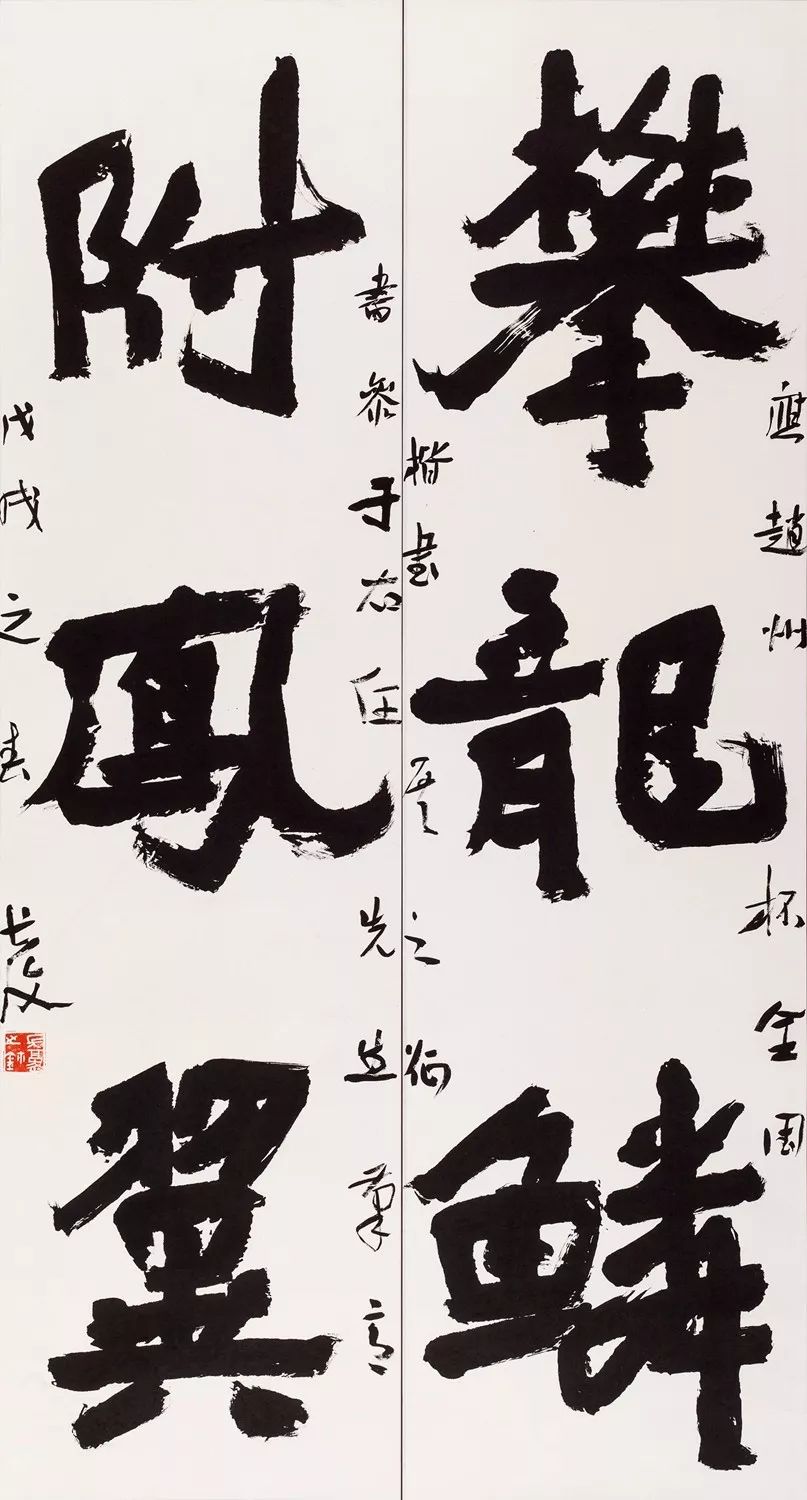 應趙州杯全國
攀龍鱗
楷書展之約
書參于右任先生筆意
附鳳翼
戊戌之春